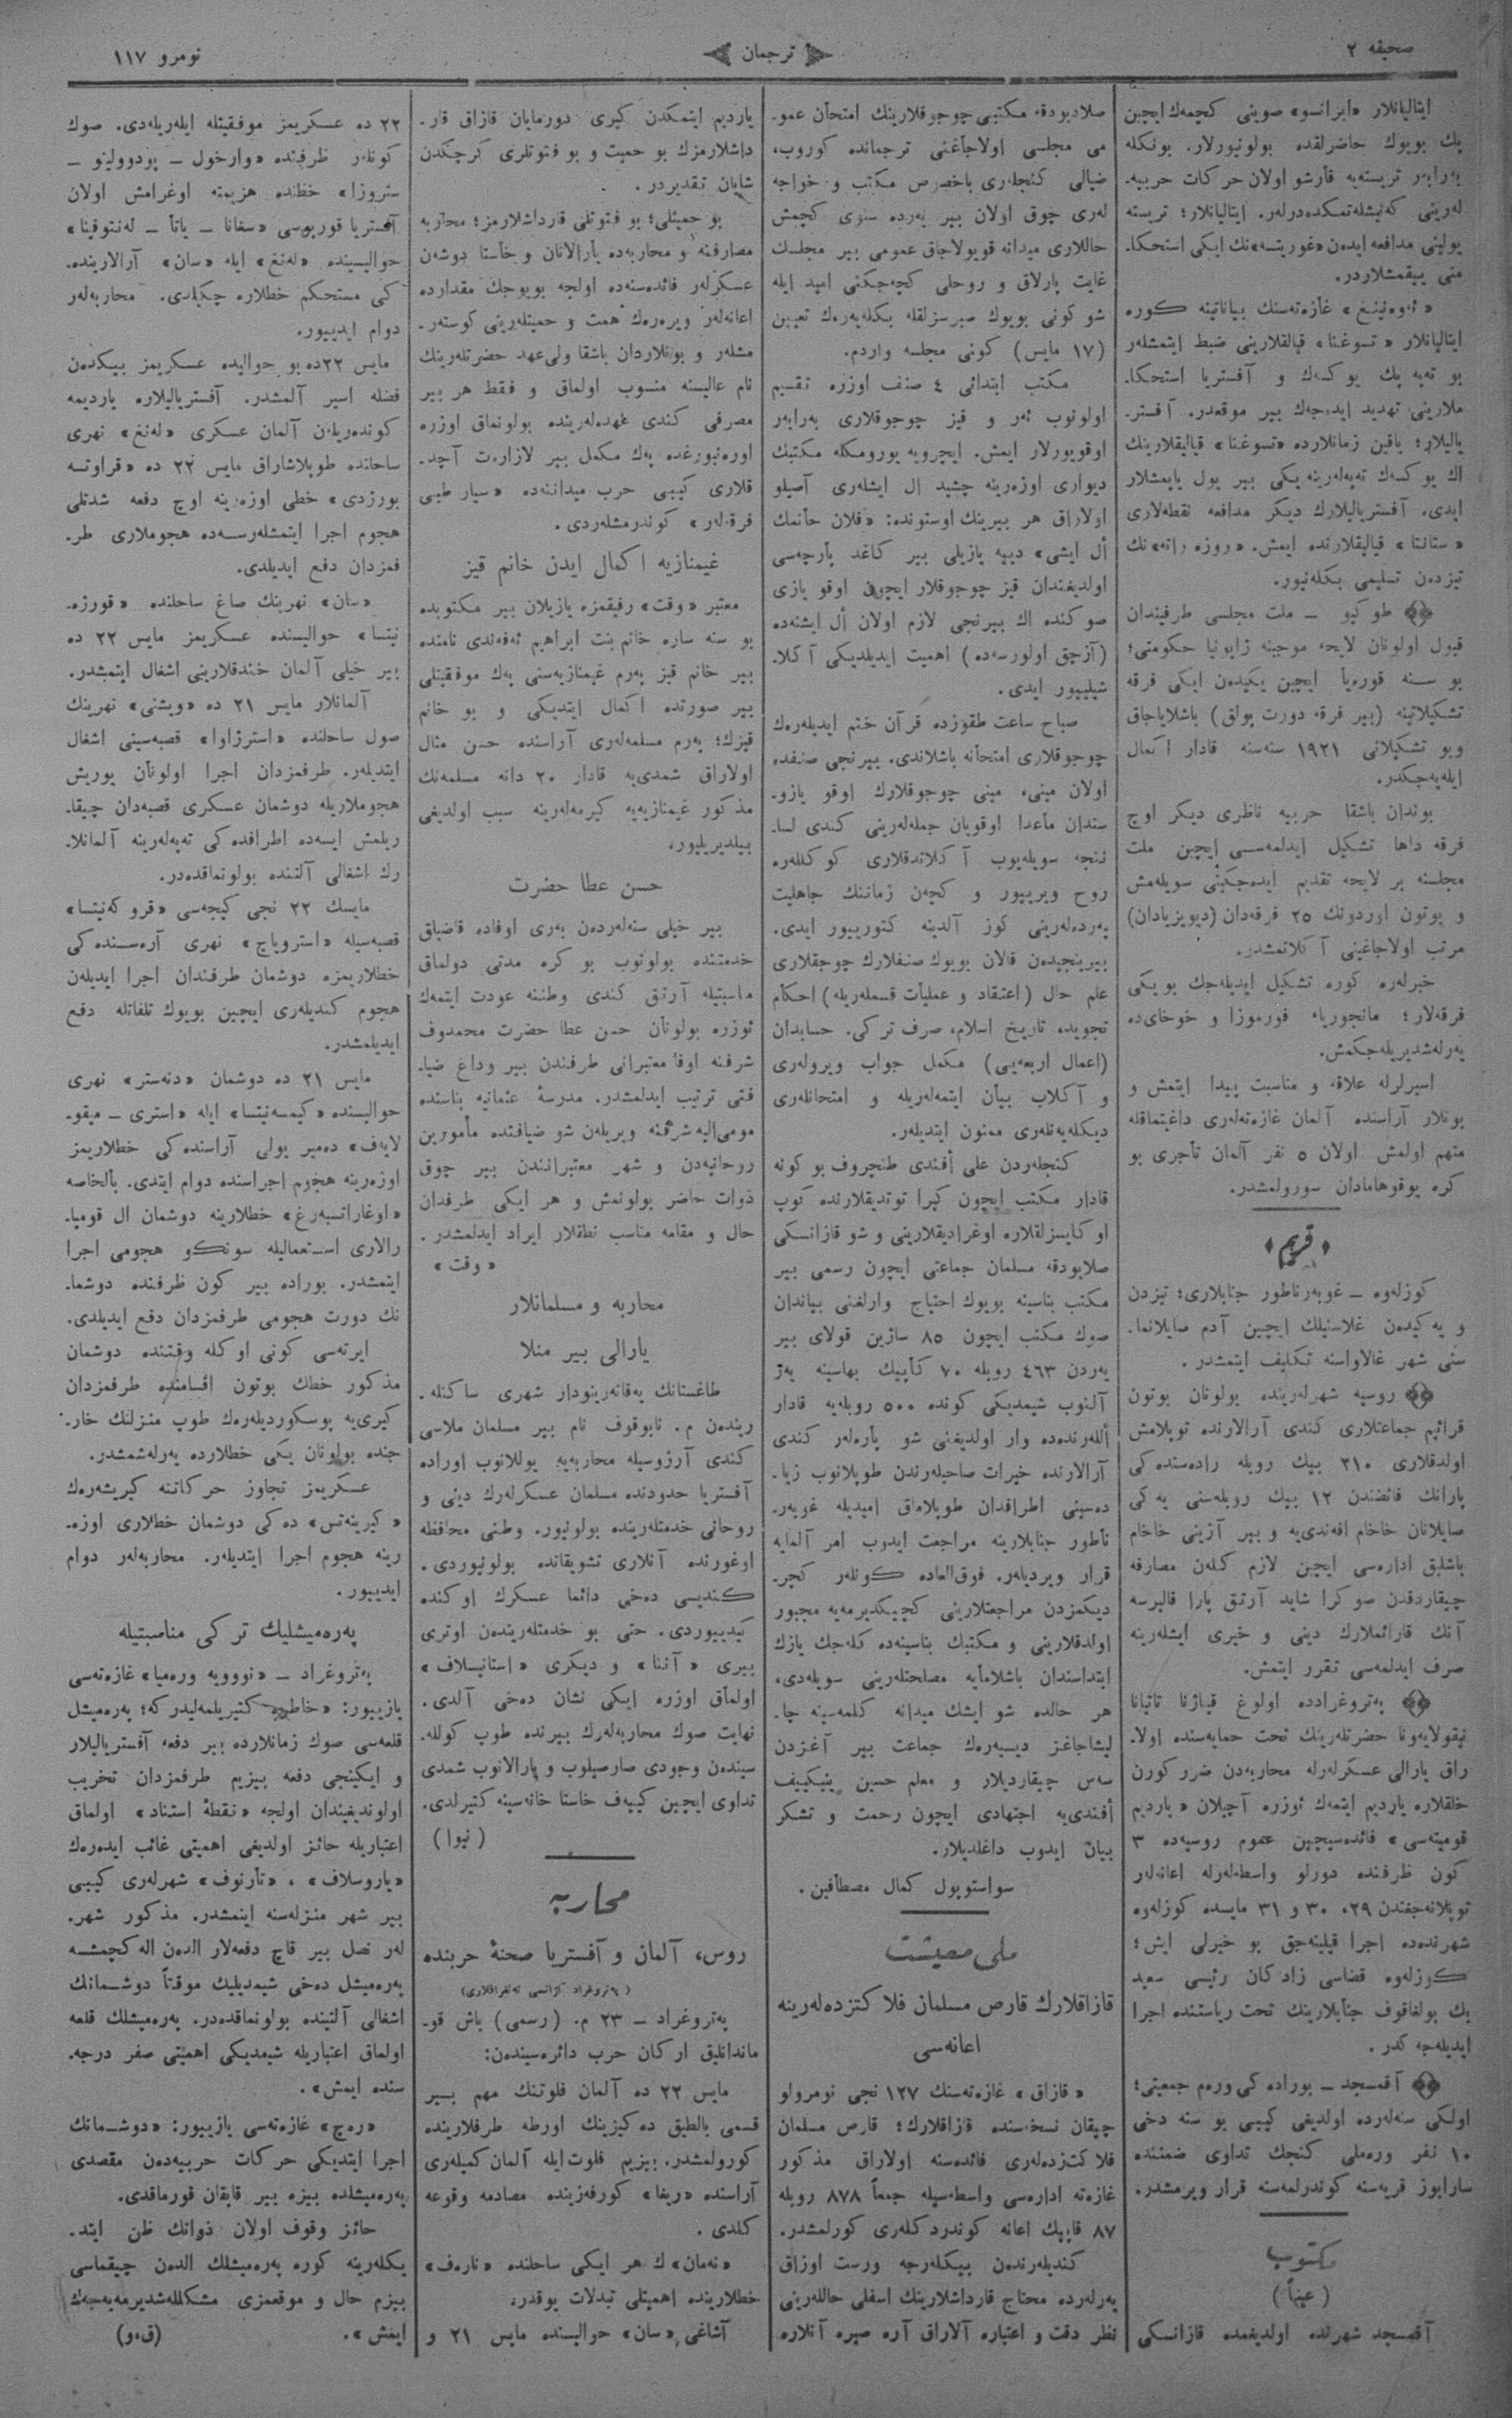 صحیفه ۲
ترجمان
نومرو ۱۱۷
ایتالیانلار «ایزانسو» صوینی کچمه‌ك ایچین
پك بویوك حاضرلقده بولونیورلار. بونکله
به‌رابه‌ر تریسته‌یه قارشو اولان حرکات حربیه‌
له‌رینی که‌نیشله‌تمکده‌درلەر. ایتالیانلار؛ تریسته
یولینی مدافعه ایده‌ن «غوریتسه»نك ایکی استحکا-
منی ییقمشلاردر.
غازه‌ته‌سنك بیاناتینه کوره
ایتالیانلار «تسوغنا» قیالقلارینی ضبط ایتمشله‌ر
بو تەپە پك یوکسەك و آفستریا استحکا-
ملارینی تهدید ایده‌جه‌ك بیر موقعدر. آفستر-
یالیلار؛ یاقین زمانلارده «تسوغنا» قیالیقلارینك
اك یوکسەك تەپەلەرینه یکی بیر یول یاپمشلار
ایدی. آفستریالیلارك دیکر مدافعه نقطه‌لاری
قیالیقلارنده ایمش. نك
تیزدن تسلیمی بکله‌نیور.
طوکیو — ملت مجلسی طرفیندان
قبول اولونان لایحه موجبنه ژاپونیا حکومتی؛
بو سنه قوره‌یا ایچین یکیدن ایکی فرقه
تشکیلاتینه (بیر فرقه دورت پولق) باشلایاجاق
وبو تشکیلاتی ۱۹۲۱ سنه‌سنه قادار اکمال
ایله‌یه‌جکدر.
بوندان باشقا حربیه ناظری دیکر اوچ
فرقه داها تشکیل ایدلمه‌سی ایچین ملت
مجلسنه بر لایحه تقدیم ایده‌جکینی سویله‌مش
و بوتون اوردونك ۲۵ فرقه‌دان (دیویزیادان)
مرتب اولاجاغینی آکلاتمشدر.
خبرلەره کوره تشکیل ایدیله‌جك بو یکی
فرقه‌لار؛ مانجوریا، فورموزا و خوخای‌ده
یەرله‌شدیریله‌جکمش.
اسیرلرله علاقه و مناسبت پیدا ایتمش و
بونلار آراسنده آلمان غازه‌ته‌له‌ری داغیتماقله
متهم اولمش اولان ۵ نفر آلمان تاجری بو
کره یوقوهامادان سورولمشدر.
قریم
کوزله‌وه — غوبه‌رناطور جنابلاری؛ تیزدن
و یه‌کیدەن غلاسنیلك ایچین آدم صایلانما-
سنی شهر غالاواسنه تکلیف ایتمشدر.
روسیه شهرلەرینده بولونان بوتون
قرائیم جماعتلاری کندی آرالارنده توپلامش
اولدقلاری ۲۱۰ بیك روبله راده‌سنده‌کی
پارانك فائضندن ۱۲ بیك روبله‌سنی یه‌کی
صایلانان خاخام افه‌ندی‌یه و بیر آزینی خاخام
باشلیق اداره‌سی ایچین لازم کله‌ن مصارفه
چیقاردقدن صوکرا شاید آرتق پارا قالیرسه
آنك قارائملارك دینی و خیری ایشلەرینه
صرف ایدلمه‌سی تقرر ایتمش.
پەتروغرادده اولوغ قنیاژنا تاتیانا
نیقولایه‌ونا حضرتلەرینك تحت حمایه‌سنده اولا-
راق یارالی عسکرلەرله محاربه‌دن ضرر کورن
خلقلاره یاردیم ایتمه‌ك ئوزره آچیلان «یاردیم
قومیته‌سی» فائده‌سیچین عموم روسیه‌ده ۳
کون ظرفنده دورلو واسطه‌لەرله اعانه‌لەر
توپلانه‌جغندن ۲۹، ۳۰ و ۳۱ مایسده کوزله‌وه
شهرنده‌ده اجرا قیلینه‌جق بو خیرلی ایش؛
کوزله‌وه قضاسی زادکان رئیسی سعید
بك بولغاقوف جنابلارینك تحت ریاستنده اجرا
ایدیله‌جه‌کدر.
آقمسجد — بوراده‌کی ورەم جمعیتی؛
اولکی سنه‌لەرده اولدیغی کیبی بو سنه دخی
۱۰ نفر ورەملی کنجك تداوی ضمننده
سارابوز قریه‌سنه کوندرلمه‌سنه قرار ویرمشدر.
مکتوب
(عیناً)
آقمسجد شهرنده اولدیغمده قازانسکی
صلابودقه مکتبی چوجوقلارینك امتحان عمو-
می مجلسی اولاجاغنی ترجمانده کوروب،
ضیالی کنجلەری باخصوص مکتب و خواجه
لەری چوق اولان بیر یەرده سنوی کچمش
حاللاری میدانه قویولاجاق عمومی بیر مجلسك
غایت پارلاق و روحلی کچه‌جکنی امید ایله
شو کونی بویوك صبرسزلقله بکله‌یەرەك تعیین
(۱۷ مایس) کونی مجلسه واردم.
مکتب ابتدائی ٤ صنف اوزره تقسیم
اولونوب ئەر و قیز چوجوقلاری بەرابەر
اوقویورلار ایمش. ایچرویه یورومکله مکتبك
دیواری اوزەرینه چشید ال ایشلەری آصیلو
اولاراق هر بیرینك اوستونده: «فلان خانمك
أل ایشی» دییه یازیلی بیر کاغد پارچه‌سی
اولدیغندان قیز چوجوقلار ایچون اوقو یازی
صوکنده اك بیرنجی لازم اولان أل ایشنه‌ده
(آزچق اولورسەده) اهمیت ایدیلدیکی آکلا-
شیلییور ایدی.
صباح ساعت طقوزده قرآن ختم ایدیلەرەك
چوجوقلاری امتحانه باشلاندی. بیرنجی صنفده
اولان مینی، مینی چوجوقلارك اوقو یازو-
سندان ماعدا اوقویان جمله‌لەرینی کندی لسا-
ننجه سویله‌یوب آکلاتدقلاری کوکللەره
روح ویرییور و کچەن زماننك جاهلیت
پەردەلەرینی کوز آلدینه کتورییور ایدی.
بیرینجیدەن قالان بویوك صنفلارك چوجقلاری
علم حال (اعتقاد و عملیات قسملەریله) احکام
تجوید، تاریخ اسلام، صرف ترکی. حسابدان
(اعمال اربعه‌یی) مکمل جواب ویرولەری
و آکلاب بیان ایتمه‌لەریله و امتحانلەری
دیکله‌یه‌نلەری ممنون ایتدیلەر.
کنجلەردن علی أفندی طنچروف بو کونه
قادار مکتب ایچون کیرا توتدیقلارنده کوپ
اوکایسزلقلاره اوغرادیقلارینی و شو قازانسکی
صلابودقه مسلمان جماعتی ایچون رسمی بیر
مکتب بناسینه بویوك احتیاج وارلغنی بیاندان
صوك مکتب ایچون ۸۵ ساژین قولای بیر
یەردن ٤٦۳ روبله ۷۰ کاپیك بهاسینه یەر
آلنوب شیمدیکی کونده ۵۰۰ روبله‌یه قادار
أللەرنده‌ده وار اولدیغنی شو پارەلەر کندی
آرالارنده خیرات صاحبلەرندن طوپلانوب زیا-
دەسینی اطرافدان طوپلاماق امیدیله غوبەر-
ناطور جنابلارینه مراجعت ایدوب امر آلمایه
قرار ویردیلەر. فوق‌العاده کونلەر کچر-
دیکمزدن مراجعتلارینی کچیکدیرمه‌یه مجبور
اولدقلارینی و مکتبك بناسینه‌ده کله‌جك یازك
ابتداسندان باشلامایه مصلحتلەرینی سویله‌دی.
هر حالده شو ایشك میدانه کلمه‌سینه چا-
لیشاجاغز دیییەرەك جماعت بیر آغزدن
سەس چیقاردیلار و معلم حسین
أفندی‌یه اجتهادی ایچون رحمت و تشکر
بیان ایدوب داغلدیلار.
سواستوپول کمال مصطافین.
ملی معیشت
قازاقلارك قارص مسلمان فلاکتزده‌لەرینه
اعانه‌سی
«قازاق» غازه‌ته‌سنك ۱۲۷ نجی نومرولو
چیقان نسخه‌سنده قازاقلارك؛ قارص مسلمان
فلاکتزده‌لەری فائده‌سنه اولاراق مذکور
غازه‌ته اداره‌سی واسطه‌سیله جمعاً ۸۷۸ روبله
۸۷ قاپیك اعانه کوندردکلەری کورلمشدر.
کندیلەرندەن بیکلەرجه ورست اوزاق
یەرلەرده محتاج قارداشلارینك اسفلی حاللەرینی
نظر دقت و اعتباره آلاراق آره صیره آنلاره
یاردیم ایتمکدن کیری دورمایان قازاق قار-
داشلارمزك بو حمیت و بو فتوتلری کرچکدن
شایان تقدیردر.
بو حمیتلی؛ بو فتوتلی قارداشلارمز؛ محاربه
مصارفنه و محاربه‌ده یارالانان و خاستا دوشەن
عسکرلەر فائده‌سنه‌ده اولجه بویوجك مقدارده
اعانه‌لەر ویرەرەك همت و حمیتلەرینی کوستەر-
مشلەر و بونلاردان باشقا ولی‌عهد حضرتلەرینك
نام عالیسنه منسوب اولماق و فقط هر بیر
مصرفی کندی عهده‌لەرینده بولونماق اوزره
اورەنبورغده پەك مکمل بیر لازارەت آچد-
قلاری کیبی حرب میداننه‌ده «سیار طبی
فرقه‌لەر» کوندرمشلەردی.
غیمنازیه اکمال ایدن خانم قیز
معتبر «وقت» رفیقمزه یازیلان بیر مکتوبده
بو سنه ساره خانم بنت ابراهیم ئەفەندی نامنده
بیر خانم قیز پەرم غیمنازیه‌سنی پەك موفقیتلی
بیر صورتده اکمال ایتدیکی و بو خانم
قیزك؛ پەرم مسلمه‌لەری آراسنده حسن مثال
اولاراق شمدی‌یه قادار ۲۰ دانه مسلمه‌نك
مذکور غیمنازیه‌یه کیرمه‌لەرینه سبب اولدیغی
بیلدیریلیور.
حسن عطا حضرت
بیر خیلی سنه‌لەردەن بەری اوفاده قاضیلق
خدمتنده بولونوب بو کره مدتی دولماق
مناسبتیله آرتق کندی وطننه عودت ایتمەك
ئوزره بولونان حسن عطا حضرت محمدوف
شرفنه اوفا معتبرانی طرفندن بیر وداع ضیا-
فتی ترتیب ایدلمشدر. مدرسهٔ عثمانیه بناسنده
مومی‌الیه شرفنه ویریلەن شو ضیافتده مأمورین
روحانیه‌دن و شهر معتبرانندن بیر چوق
ذوات حاضر بولونمش و هر ایکی طرفدان
حال و مقامه مناسب نطقلار ایراد ایدلمشدر.
«وقت»
محاربه و مسلمانلار
یارالی بیر منلا
طاغستانك یەقاتەرینودار شهری ساکنلە-
ریندەن م. نابوقوف نام بیر مسلمان ملاسی
کندی آرزوسیله محاربه‌یه یوللانوب اوراده
آفستریا حدودنده مسلمان عسکرلەرك دینی و
روحانی خدمتلەرینده بولونیور. وطنی محافظه
اوغورنده آنلاری تشویقاتده بولونیوردی.
کندیسی دەخی دائما عسکرك اوکنده
کیدییوردی. حتی بو خدمتلەریندەن اوتری
بیری «آننا» و دیکری «استانیسلاف»
اولماق اوزره ایکی نشان دەخی آلدی.
نهایت صوك محاربه‌لەرك بیرنده طوب کوللە-
سیندەن وجودی صارصیلوب و یارالانوب شمدی
تداوی ایچین کییەف خاستا خانه‌سینه کتیرلدی.
(نیوا)
محاربه
روس، آلمان و آفستریا صحنهٔ حربنده
(پەتروغراد آژانسی تەلغرافلاری)
پەتروغراد — ۲۳ م. (رسمی) باش قو-
ماندانلیق ارکان حرب دائرەسیندەن:
مایس ۲۲ ده آلمان فلوتنك مهم بیر
قسمی بالطیق دەکیزینك اورطه طرفلارینده
کورولمشدر. بیزیم فلوت ایله آلمان کمیلەری
آراسنده «ریغا» کورفەزینده مصادمه وقوعه
کلدی.
«نەمان»ك هر ایکی ساحلنده «نارەف»
خطلارینده اهمیتلی تبدلات یوقدر.
آشاغی «سان» حوالیسنده مایس ۲۱ و
۲۲ ده عسکریمز موفقیتله ایلەریلەدی. صوك
کونلەر ظرفنده
خطنده هزیمته اوغرامش اولان
آفستریا قورپوسی
حوالیسینده «لەنغ» ایله «سان» آرالارینده-
کی مستحکم خطلاره چکلدی. محاربه‌لەر
دوام ایدییور.
مایس ۲۲ده بو حوالیده عسکریمز بیکدەن
فضله اسیر آلمشدر. آفستریالیلاره یاردیمه
کوندەریلەن آلمان عسکری «لەنغ» نهری
ساحلنده طوپلاشاراق مایس ۲۲ ده
خطی اوزەرینه اوچ دفعه شدتلی
هجوم اجرا ایتمشلەرسەده هجوملاری طر-
فمزدان دفع ایدیلدی.
«سان» نهرینك صاغ ساحلنده «قورژە-
نیتسا» حوالیسنده عسکریمز مایس ۲۲ ده
بیر خیلی آلمان خندقلارینی اشغال ایتمشدر.
آلمانلار مایس ۲۱ ده «ویشنی» نهرینك
صول ساحلنده «استرژاوا» قصبه‌سینی اشغال
ایتدیلەر. طرفمزدان اجرا اولونان یوریش
هجوملاریله دوشمان عسکری قصبه‌دان چیقا-
ریلمش ایسەده اطرافده‌کی تەپەلەرینه آلمانلا-
رك اشغالی آلتنده بولونماقده‌در.
مایسك ۲۲ نجی کیجه‌سی «قروکەنیتسا»
قصبه‌سیله «استرویاچ» نهری آره‌سنده‌کی
خطلاریمزه دوشمان طرفندان اجرا ایدیلەن
هجوم کندیلەری ایچین بویوك تلفاتله دفع
ایدیلمشدر.
مایس ۲۱ ده دوشمان «دنەستر» نهری
حوالیسنده ایله «استری — میقو-
لایەف» دەمیر یولی آراسنده‌کی خطلاریمز
اوزەرینه هجوم اجراسنده دوام ایتدی. بالخاصه
«اوغارتسبەرغ» خطلارینه دوشمان ال قومبا-
رالاری استعمالیله سونکو هجومی اجرا
ایتمشدر. بوراده بیر کون ظرفنده دوشما-
نك دورت هجومی طرفمزدان دفع ایدیلدی.
ایرته‌سی کونی اوکله وقتنده دوشمان
مذکور خطك بوتون اقسامنده طرفمزدان
کیری‌یه پوسکوردیلەرەك طوپ منزلنك خار-
جنده بولونان یکی خطلارده یەرلەشمشدر.
عسکریمز تجاوز حرکاتنه کیریشەرەك
ده‌کی دوشمان خطلاری اوزە-
رینه هجوم اجرا ایتدیلەر. محاربه‌لەر دوام
ایدییور.
پەرەمیشلیك ترکی مناسبتیله
پەتروغراد — «نوویه ورەمیا» غازه‌ته‌سی
یازییور: «خاطره کتیریلمه‌لیدر که؛ پەرەمیشل
قلعه‌سی صوك زمانلارده بیر دفعه آفستریالیلار
و ایکینجی دفعه بیزیم طرفمزدان تخریب
اولوندیغیندان اولجه «نقطهٔ استناد» اولماق
اعتباریله حائز اولدیغی اهمیتی غائب ایدەرەك
«یاروسلاف»، «تارنوف» شهرلەری کیبی
بیر شهر منزله‌سنه اینمشدر. مذکور شهر-
لەر نصل بیر قاچ دفعه‌لار الدەن اله کچمشسه
پەرەمیشل دەخی شیمدیلیك موقتاً دوشمانك
اشغالی آلتینده بولونماقده‌در. پەرەمیشلك قلعه
اولماق اعتباریله شیمدیکی اهمیتی صفر درجه-
سنده ایمش».
«رەچ» غازه‌ته‌سی یازییور: «دوشمانك
اجرا ایتدیکی حرکات حربیه‌دەن مقصدی
پەرەمیشلده بیزه بیر قاپقان قورماقدی.
حائز وقوف اولان ذواتك ظن ایتد-
یکلەرینه کوره پەرەمیشلك الدەن چیقماسی
بیزم حال و موقعمزی مشکللەشدیرمه‌یه‌جه‌ك
ایمش».
(ق.و)